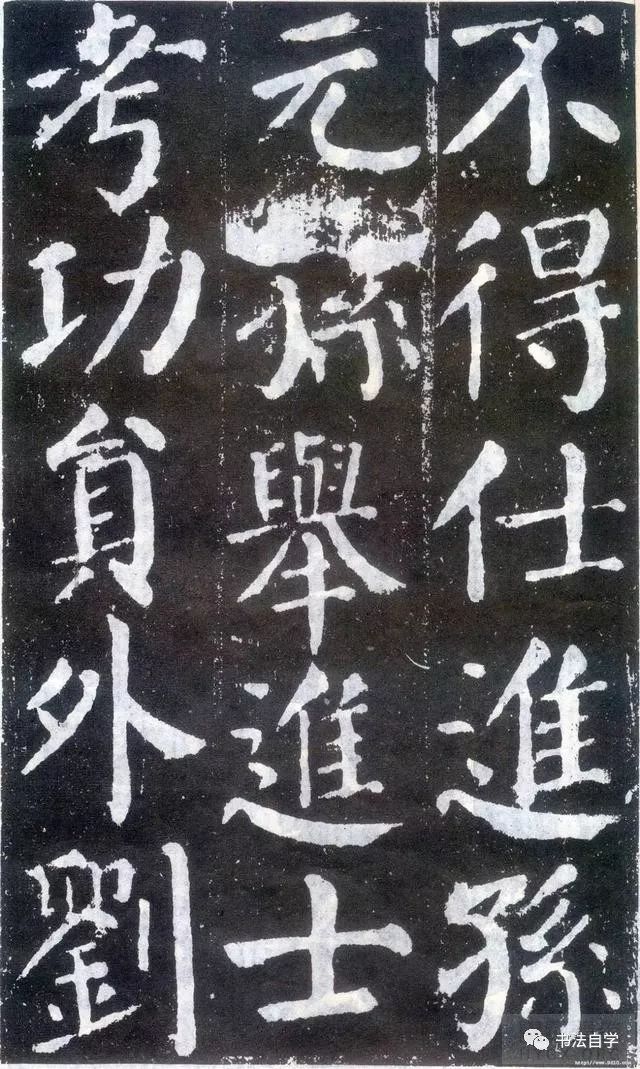 不得仕進孫
元孫舉進士
考功員外劉
书法自学